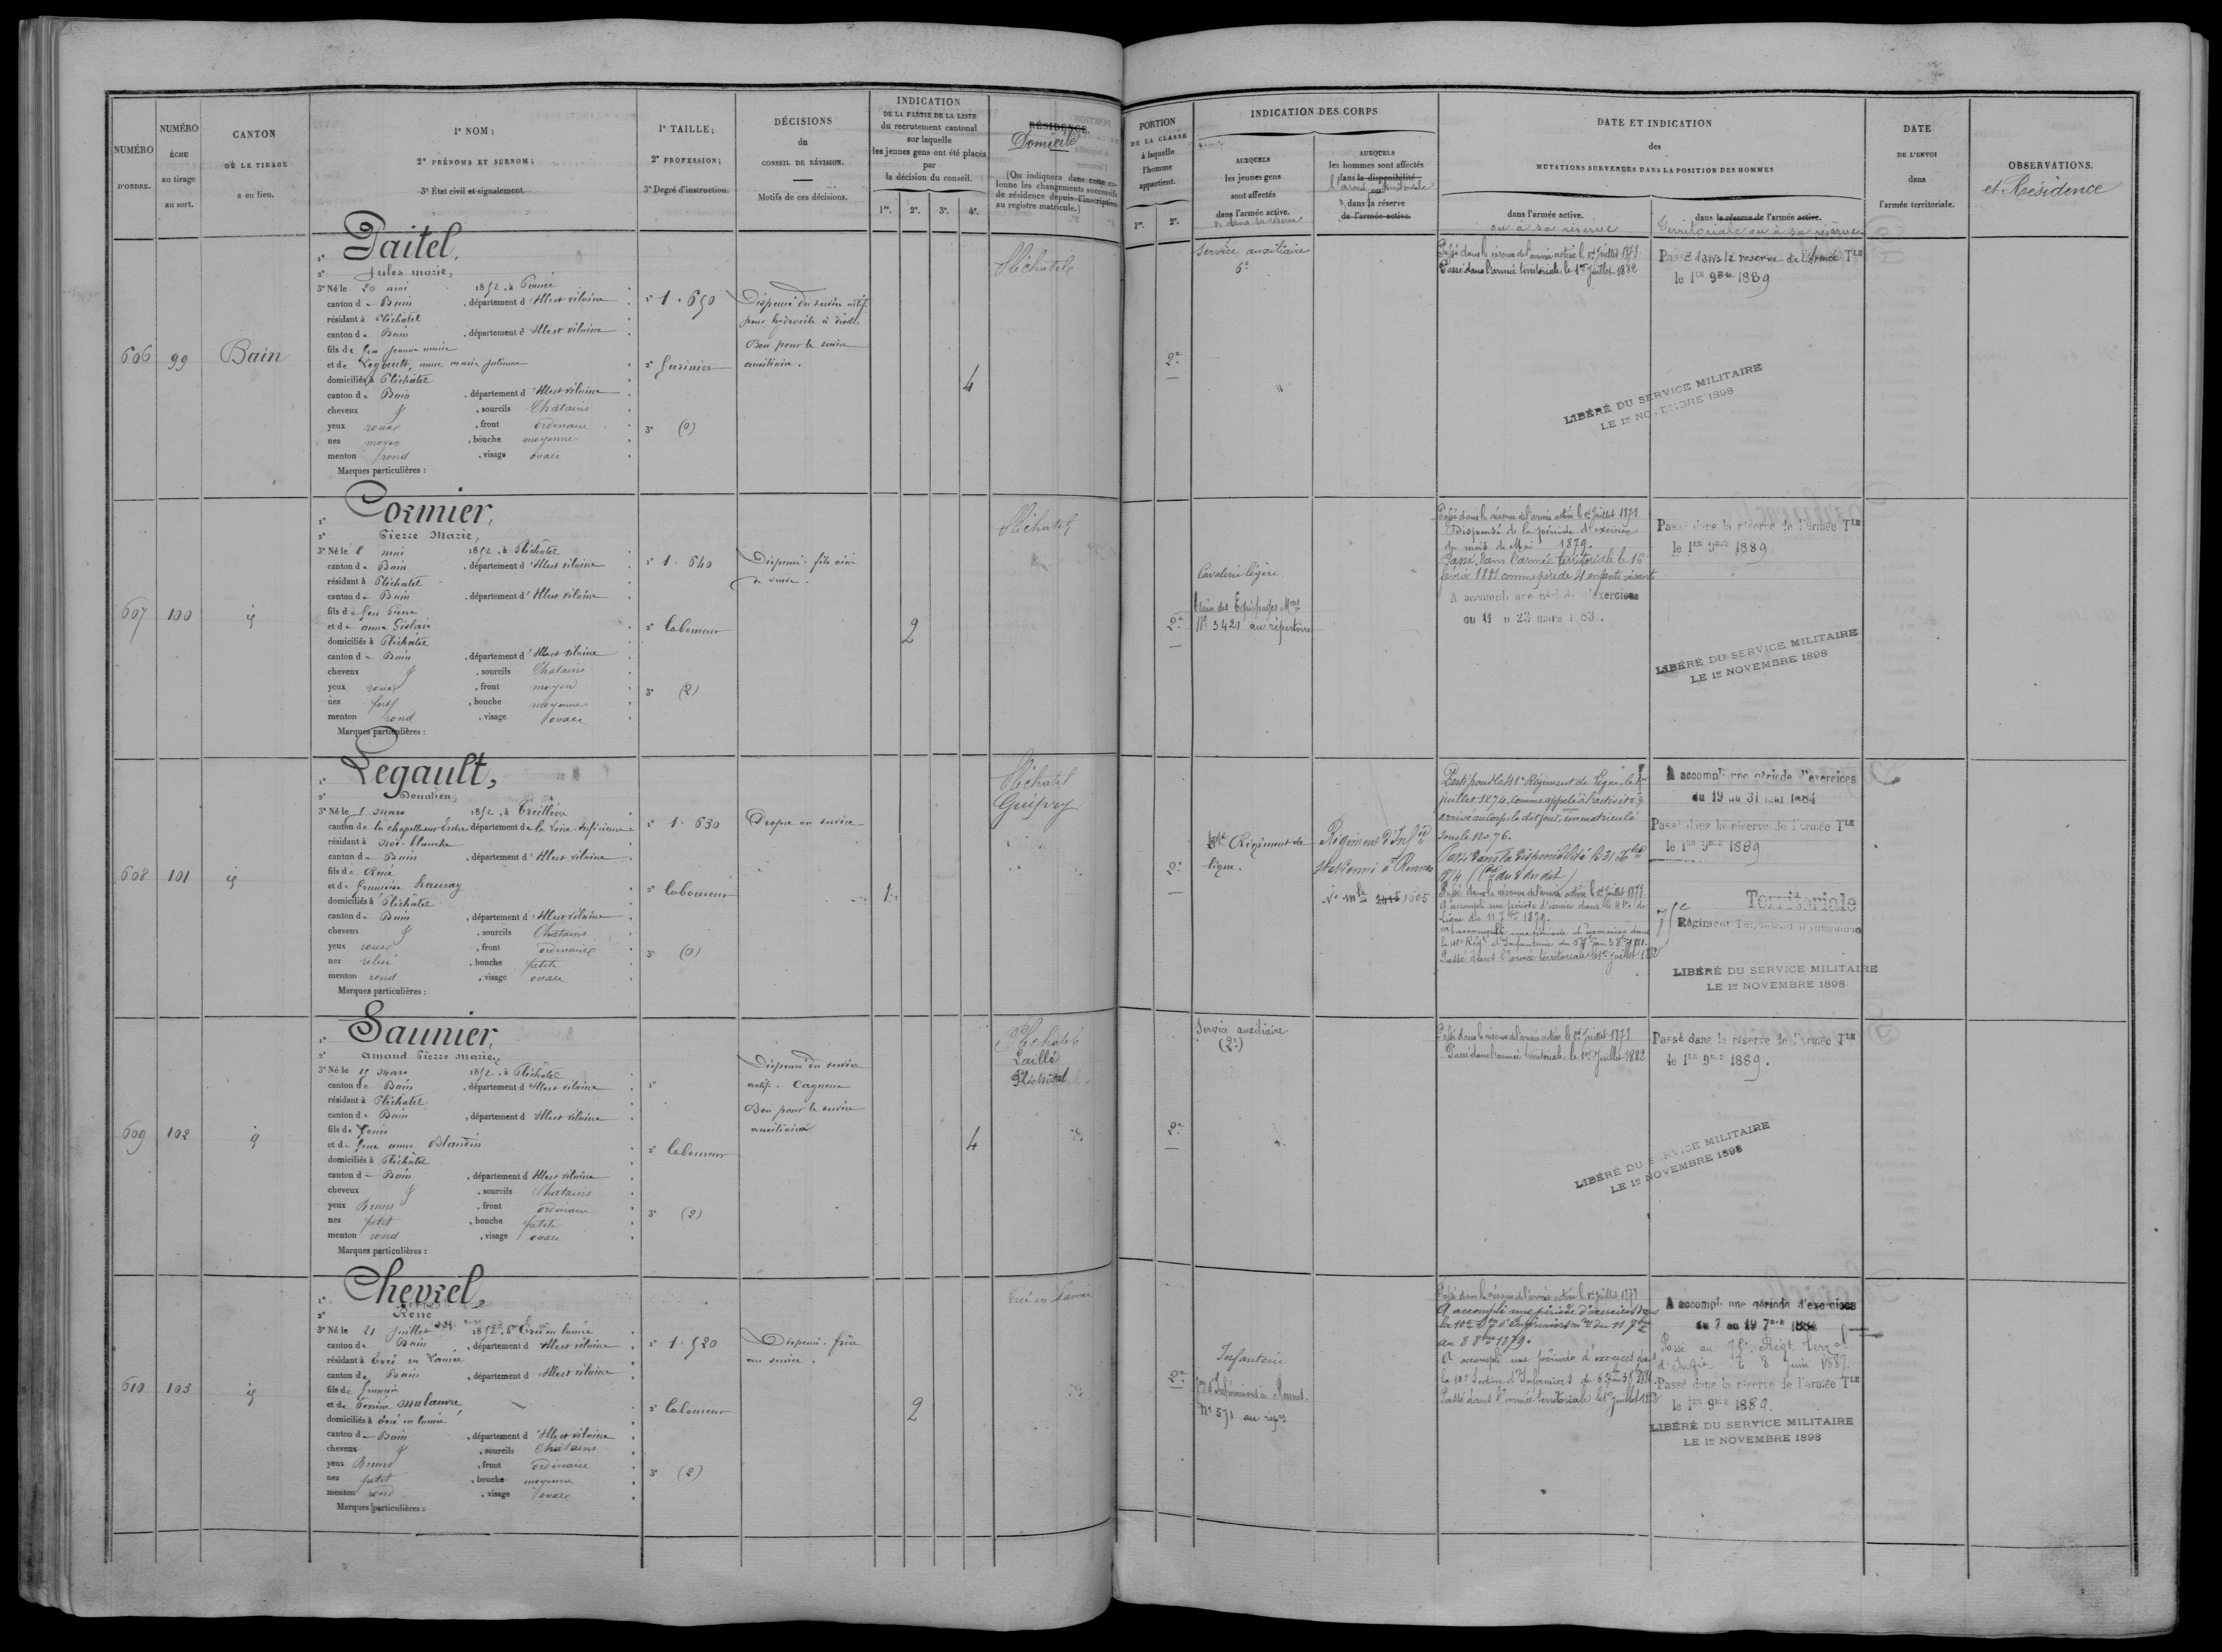 NUMÉRO
D'ORDRE.
NUMÉRO
ÉCHU
au tirage
au sort.
CANTON
OÙ LE TIRAGE
a eu lieu.
1° NOM;
2° PRÉNOMS ET SURNOM;
3° État civil et signalement.
1° TAILLE;
2° PROFESSION;
3° Degré d'instruction.
DÉCISIONS
du
CONSEIL DE RÉVISION.
Motifs de ces décisions.
INDICATION
DE LA PARTIE DE LA LISTE
du recrutement cantonal
sur laquelle
les jeunes gens ont été placés
par
la décision du conseil.
1re. 2e. 3e. 4e.
RÉSIDENCE.
Domicile
(On indiquera dans cette co-
lonne les changements successifs
de résidence depuis l'inscription
au registre matricule.)
PORTION
DE LA CLASSE
à laquelle
l'homme
appartient.
1re. 2e.
INDICATION DES CORPS
AUXQUELS
les jeunes gens
sont affectés
dans l'armée active.
et dans sa réserve
AUXQUELS
les hommes sont affectés
dans la disponibilité
l'armée territoriale
ou
dans la réserve
de l'armée active.
DATE ET INDICATION
des
MUTATIONS SURVENUES DANS LA POSITION DES HOMMES
dans l'armée active.
ou à sa réserve
dans la réserve de l'armée active.
Territoriale ou à sa réserve
DATE
DE L'ENVOI
dans
l'armée territoriale.
OBSERVATIONS.
et Résidence
606 99 Bain
1° Daitel,
2° Jules marie,
3° Né le 20 mai 1852, à
canton de Bain, département d'Ille et vilaine
résidant à Pléchatel
canton de Bain, département d'Ille et vilaine
fils de feu
et de Legault, anne marie
domiciliés à Pléchatel
canton de Bain, département d'Ille et vilaine
cheveux & sourcils Chatains
yeux roux, front ordinaire
nez moyen, bouche moyenne
menton rond, visage ovale
Marques particulières :
1° 1.650
2°
3° (0)
Dispensé du service actif
pour hydrocèle à droite
Bon pour le service
auxiliaire.
4
Pléchatel
2e
Service auxiliaire
6°
"
Passé dans la réserve de l'armée active le 1er Juillet 1879
Passé dans l'armée territoriale le 1er Juillet 1882
Passé dans la reserve de l'Armée TLE
le 1ER 9BRE 1889
LIBÉRÉ DU SERVICE MILITAIRE
LE 1er NOVEMBRE 1898
607 100 id
1° Cormier,
2° Pierre Marie,
3° Né le 8 mai 1852, à Pléchatel
canton de Bain, département d'Ille et vilaine
résidant à Pléchatel
canton de Bain, département d'Ille et vilaine
fils de feu Pierre
et de anne
domiciliés à Pléchatel
canton de Bain, département d'Ille et vilaine
cheveux & sourcils Chatains
yeux roux, front moyen
nez fort, bouche moyenne
menton rond, visage ovale
Marques particulières :
1° 1.640
2° laboureur
3° (2)
Dispensé. fils aîné
de veuve.
2
Pléchatel
2e
Cavalerie légère
Train des Equipages Mres
No 3421 au répertoire
Passé dans la réserve de l'armée active le 1er Juillet 1879
Dispensé de la période d'exercice
du mois de Mai 1879.
Passé dans l'armée territoriale le 16
février 1881 comme père de 4 enfants vivants
A accompli une période d'exercices
du 11 au 23 mars 1883.
Passé dans la réserve de l'armée TLE
le 1ER 9BRE 1889
LIBÉRÉ DU SERVICE MILITAIRE
LE 1er NOVEMBRE 1898
608 101 id
1° Legault,
2° Donatien,
3° Né le 1 mars 1852, à Treillière
canton de la chapelle sur Erdre, département de la Loire-Inférieure
résidant à noë-blanche
canton de Bain, département d'Ille et vilaine
fils de
et de françoise
domiciliés à Pléchatel
canton de Bain, département d'Ille et vilaine
cheveux & sourcils Chatains
yeux roux, front ordinaire
nez relevé, bouche petite
menton rond, visage ovale
Marques particulières :
1° 1.630
2° laboureur
3° (0)
Propre au service
1
Pléchatel
Guipry
2e
41e Régiment de
ligne.
Régiment d'Infie
stationné à Rennes
No mle 1605
Parti pour le 41e Régiment de Ligne le 1er
juillet 1874, comme appelé à l'activité
arrivé au corps le dit jour, immatriculé
sous le No 76.
Passé dans la disponibilité le 31 Xbre
Passé dans la réserve de l'armée active le 1er Juillet 1879
A accompli une période d'exercice dans le 41e de
Ligne du 11 7bre 1879.
A accompli une période d'exercices dans
le 41e Régt d'Infanterie du
Passé dans l'armée territoriale le 1er juillet 1882
A accompli une période d'exercices
du 19 au 31 mai 1884
Passé dans la réserve de l'armée TLE
le 1ER 9BRE 1889
Territoriale
75e Régiment Territorial d'Infanterie
LIBÉRÉ DU SERVICE MILITAIRE
LE 1er NOVEMBRE 1898
609 102 id
1° Saunier,
2° amand Pierre marie,
3° Né le 15 mars 1852, à Pléchatel
canton de Bain, département d'Ille et vilaine
résidant à Pléchatel
canton de Bain, département d'Ille et vilaine
fils de Louis
et de feue anne Blandin
domiciliés à Pléchatel
canton de Bain, département d'Ille et vilaine
cheveux & sourcils Chatains
yeux Bruns, front ordinaire
nez petit, bouche petite
menton rond, visage ovale
Marques particulières :
1°
2° laboureur
3° (2)
Dispensé du service
actif. Cagneux
Bon pour le service
auxiliaire
4
Pléchatel
Laillé
Pléchatel
2e
Service auxiliaire
(2°)
Passé dans la réserve de l'armée active le 1er Juillet 1879
Passé dans l'armée territoriale le 1er Juillet 1882
Passé dans la réserve de l'armée TLE
le 1ER 9BRE 1889.
LIBÉRÉ DU SERVICE MILITAIRE
LE 1er NOVEMBRE 1898
610 103 id
1° Chevrel,
2° René
3° Né le 21 juillet 1852, à Ercé en lamée
canton de Bain, département d'Ille et vilaine
résidant à Ercé en Lamée
canton de Bain, département d'Ille et vilaine
fils de françois
et de Perrine malœuvre
domiciliés à Ercé en lamée
canton de Bain, département d'Ille et vilaine
cheveux & sourcils Chatains
yeux Bruns, front ordinaire
nez petit, bouche moyenne
menton rond, visage ovale
Marques particulières :
1° 1.520
2° laboureur
3° (2)
Dispensé. frère
au service.
2
Ercé en Lamée
2e
Infanterie
Son d'Infirmiers à Rennes
No 571 au répre
Passé dans la réserve de l'armée active le 1er Juillet 1879
A accompli une période d'exercices dans
la 10e Son d'Infirmiers mres du 11 7bre
au 8 8bre 1879.
A accompli une période d'exercices dans
la 10e Section d'Infirmiers du
Passé dans l'armée territoriale le 1er Juillet 1882
A accompli une période d'exercices
du 7 au 19 7bre 1884
Passé au 75e Régt Terral
d'Infie le 8 Juin 1887
Passé dans la réserve de l'armée TLE
le 1ER 9BRE 1889.
LIBÉRÉ DU SERVICE MILITAIRE
LE 1er NOVEMBRE 1898